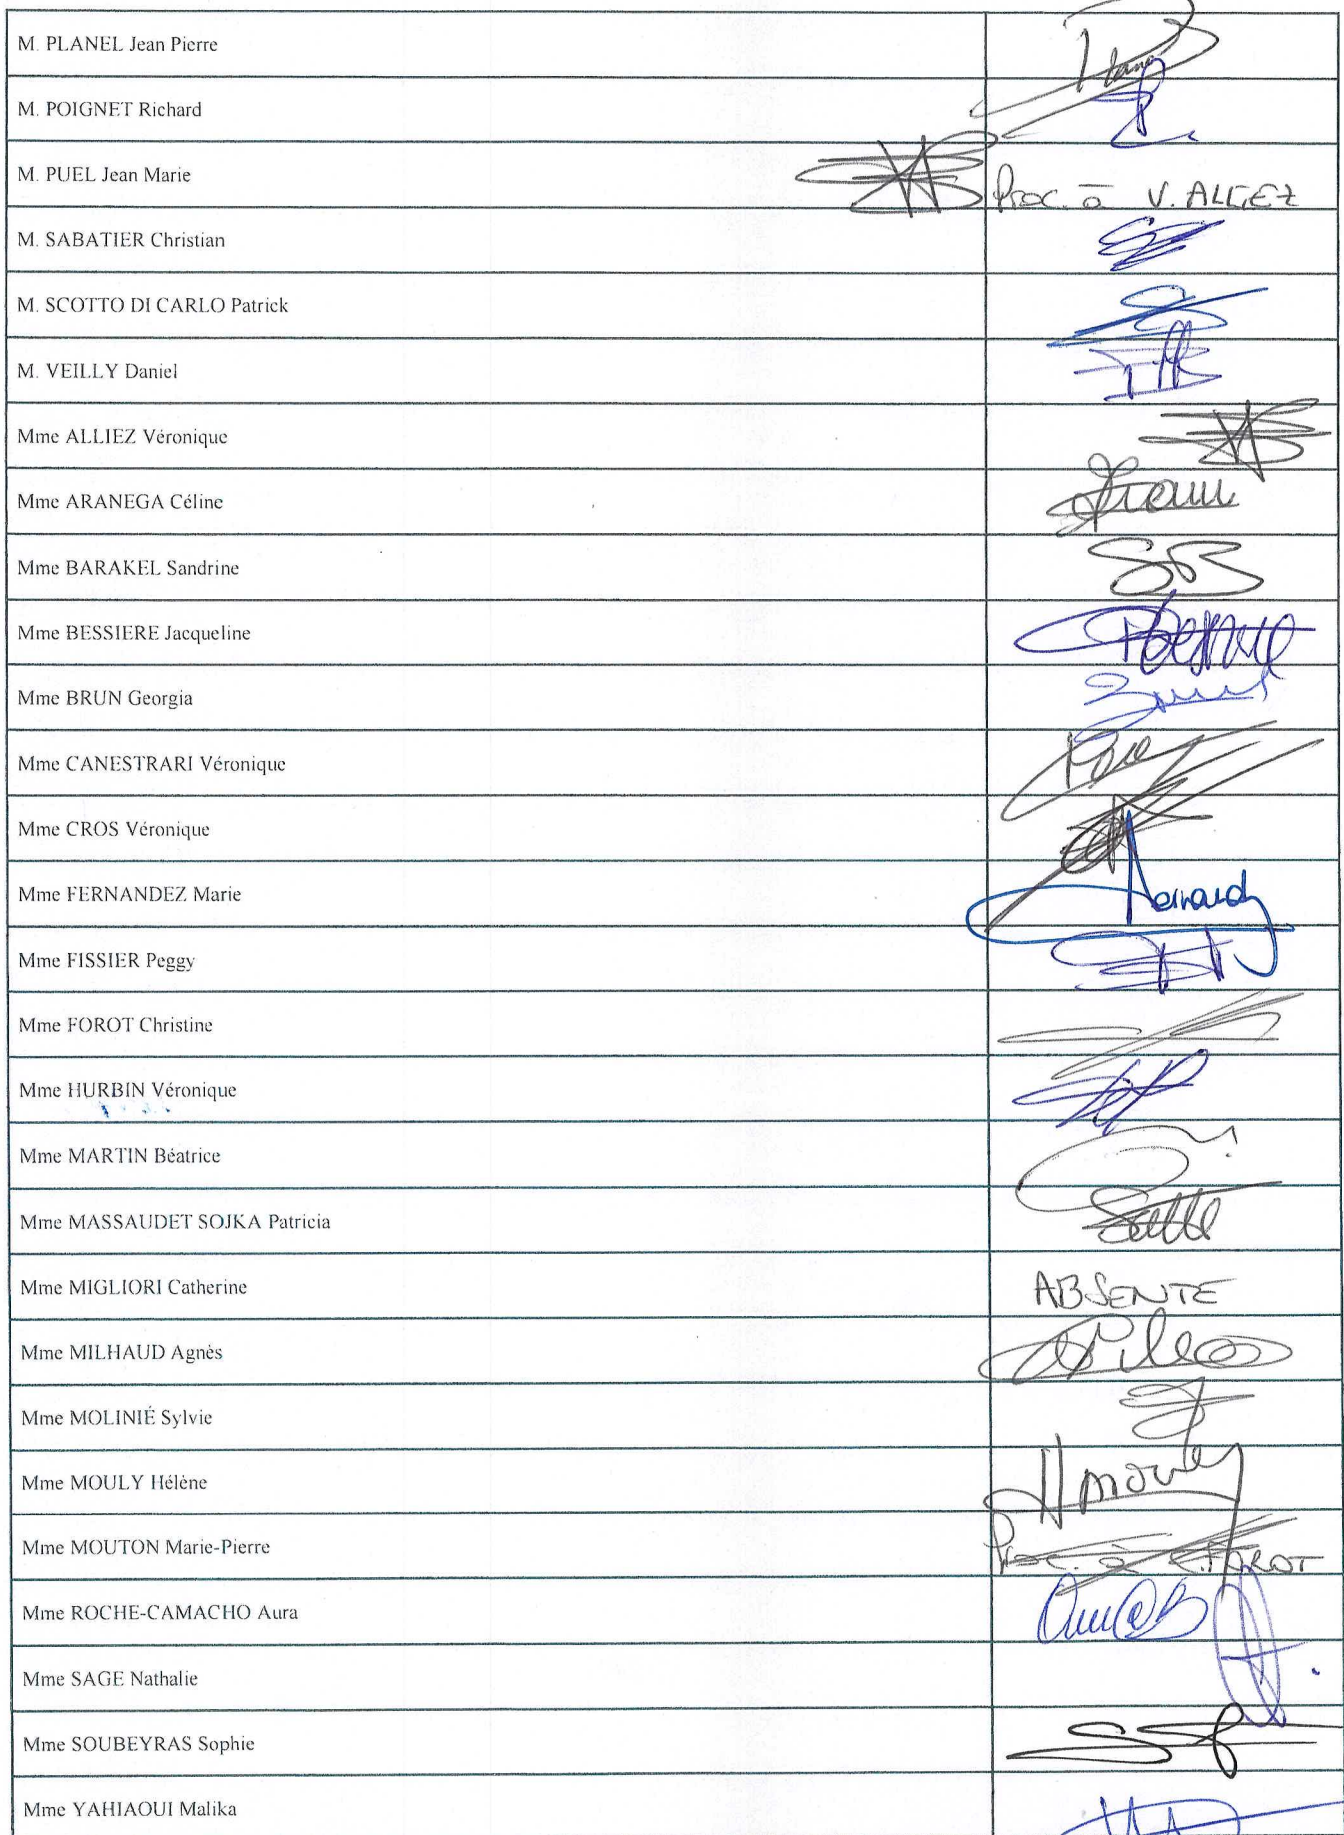 M. PLANEL Jean Pierre
M. POIGNET Richard
M. PUEL Jean Marie Proc. à V. ALLIEZ
M. SABATIER Christian
M. SCOTTO DI CARLO Patrick
M. VEILLY Daniel
Mme ALLIEZ Véronique
Mme ARANEGA Céline
Mme BARAKEL Sandrine SB
Mme BESSIERE Jacqueline
Mme BRUN Georgia
Mme CANESTRARI Véronique
Mme CROS Véronique
Mme FERNANDEZ Marie
Mme FISSIER Peggy
Mme FOROT Christine
Mme HURBIN Véronique
Mme MARTIN Béatrice
Mme MASSAUDET SOJKA Patricia
Mme MIGLIORI Catherine ABSENTE
Mme MILHAUD Agnès
Mme MOLINIÉ Sylvie
Mme MOULY Hélène H mouly
Mme MOUTON Marie-Pierre Proc. à C. FOROT
Mme ROCHE-CAMACHO Aura
Mme SAGE Nathalie
Mme SOUBEYRAS Sophie
Mme YAHIAOUI Malika